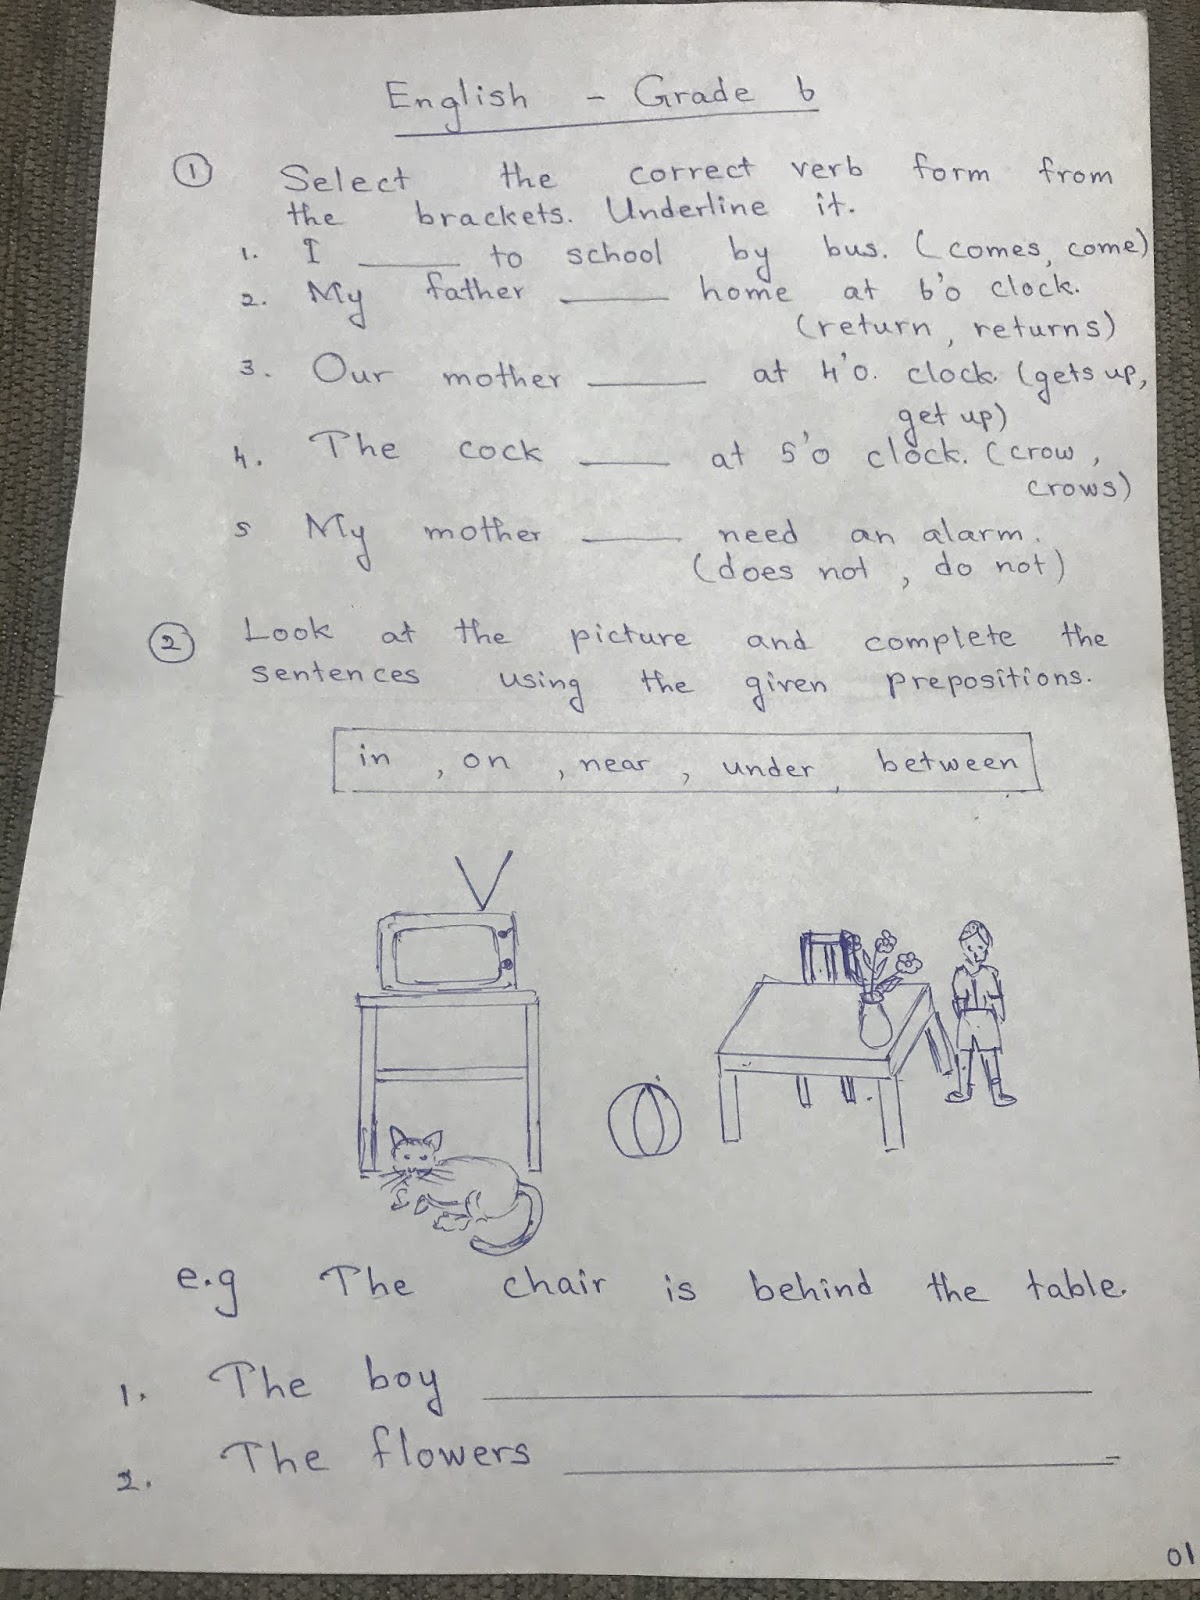 English - Grade 6
1 Select the correct verb form from
the brackets. Underline it.
1. I ____ to school by bus. (comes, come)
2. My father ____ home at 6'o clock.
(return, returns)
3. Our mother ____ at 4'o. clock. (gets up,
get up)
4. The cock ____ at 5'o clock. (crow,
crows)
5 My mother ____ need an alarm.
(does not, do not)
2 Look at the picture and complete the
sentences using the given prepositions.
in, on, near, under, between
e.g The chair is behind the table.
1. The boy ____
2. The flowers ____
01